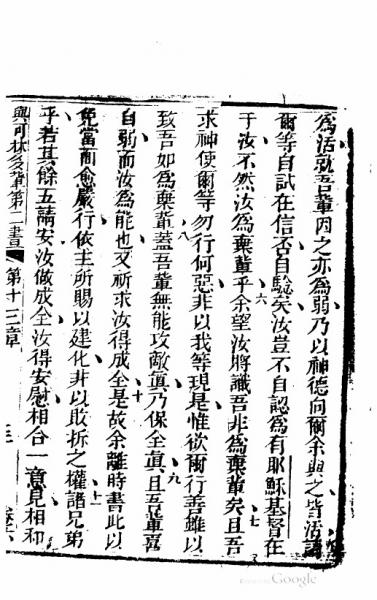 為活就吾輩因之亦為弱乃以神德向爾余與之皆活請
爾等自試在信否自騐矣汝豈不自認為有耶穌基督在
于汝不然汝為棄輩乎六余望汝將識吾非為棄輩矣七且吾
求神使爾等勿行何惡非以我等現是惟欲爾行善雖以
致吾如為棄輩八蓋吾輩無能攻敵真乃保全真九且吾輩喜
自弱而汝為能也又祈求汝得成全十是故余離時書此以
免當面愈嚴行依主所賜以建化非以敗拆之權十一諸兄弟
乎若其餘吾請安汝做成全汝得安慰相合一意見相和
與可林多輩第二書 第十三章
Google